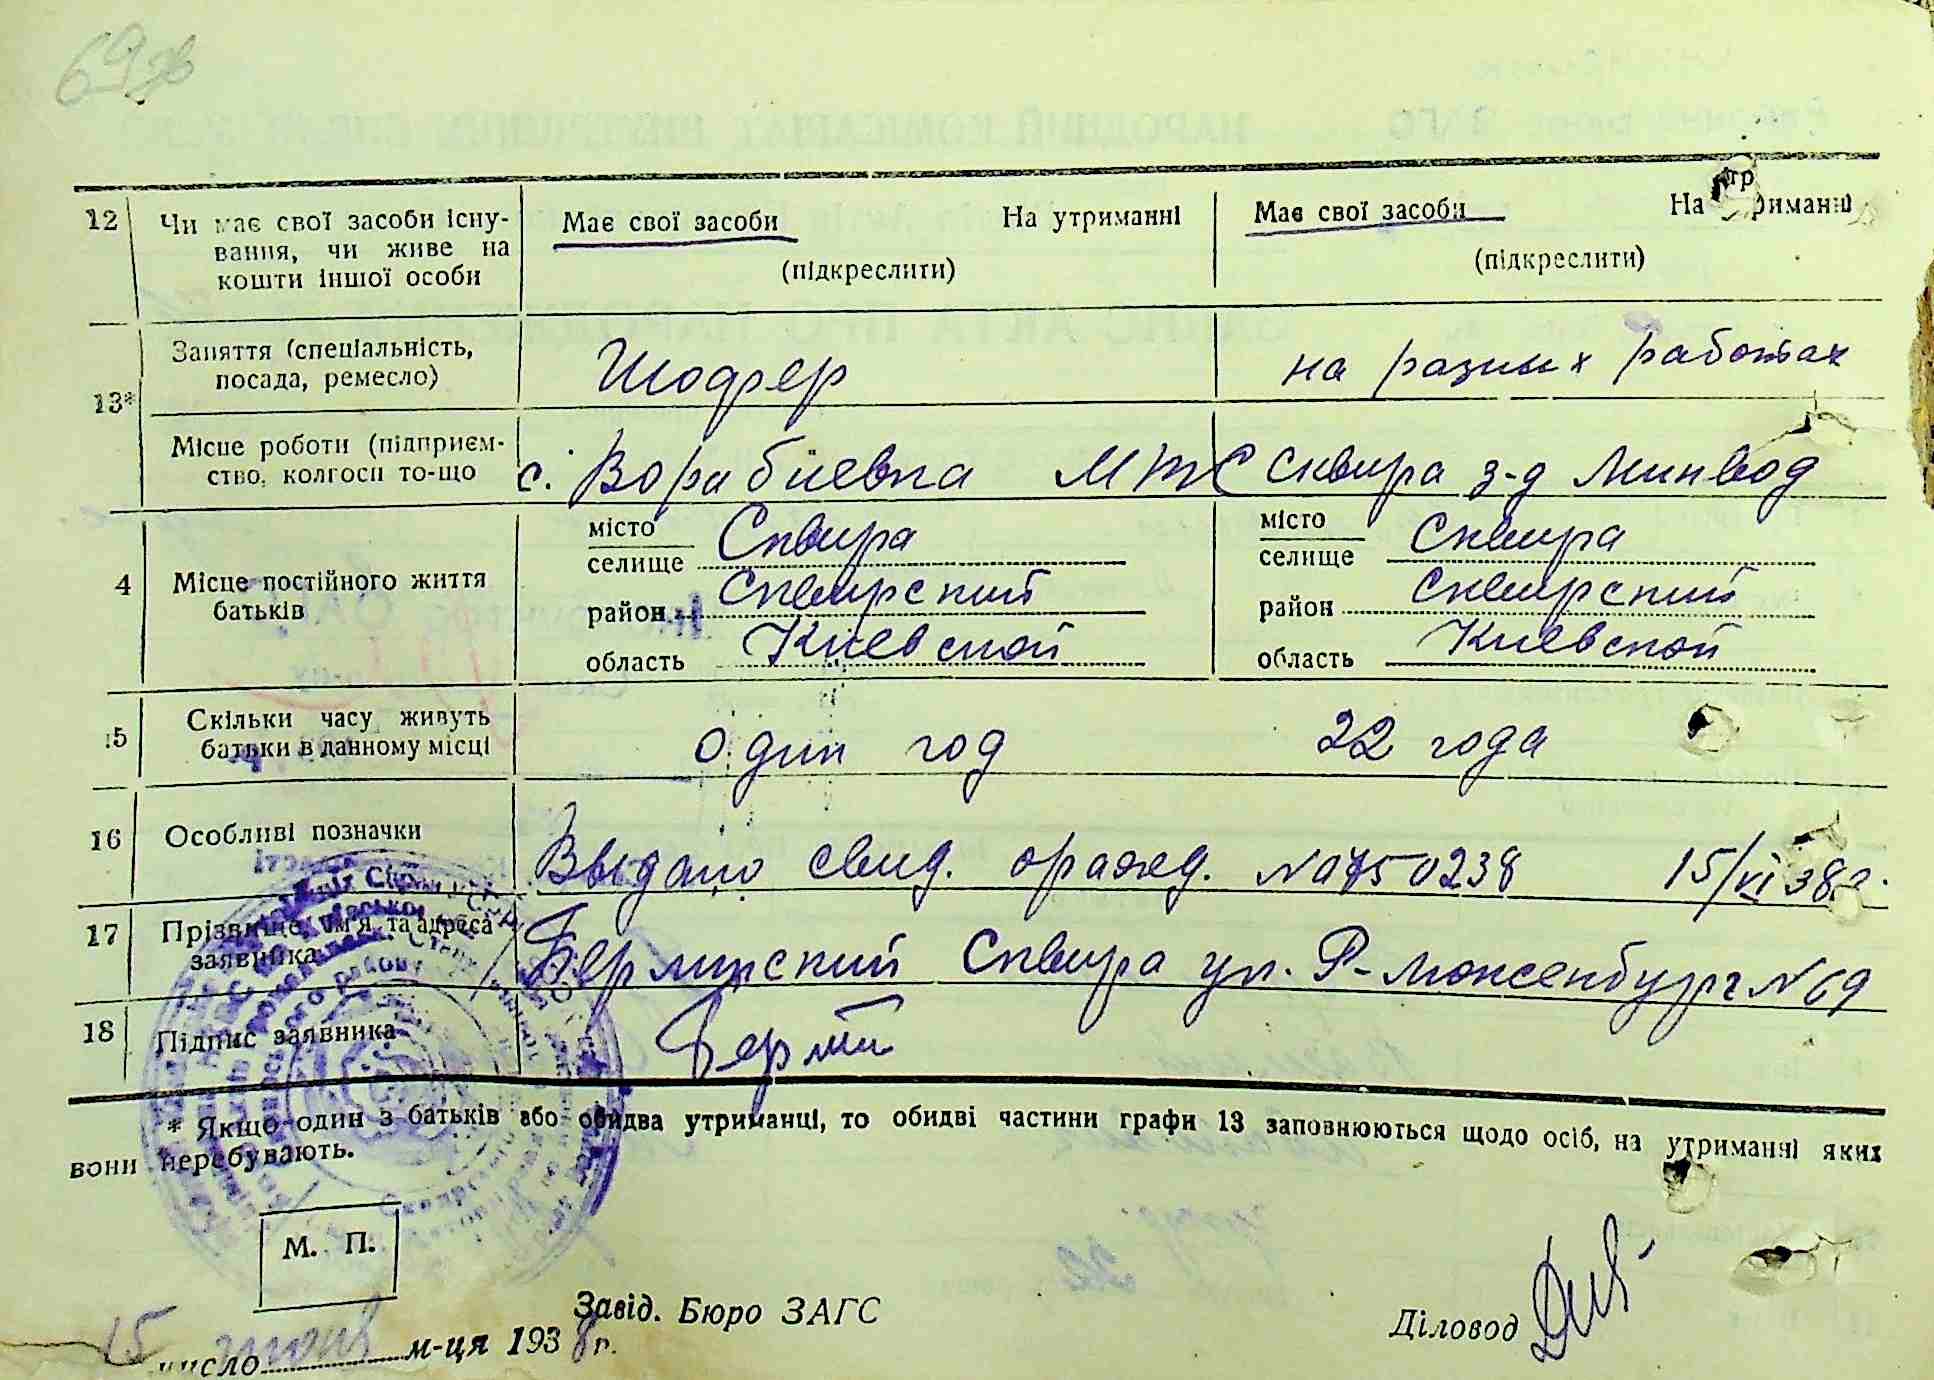 69зв
12 Чи має свої засоби існу- Має свої засоби На утриманні Має свої засоби На утриманні
вання, чи живе на
кошти іншої особи (підкреслити) (підкреслити)
Заняття (спеціальність, Шофер на разных работах
посада, ремесло)
13*
Місце роботи (підприєм- с. Ворабиевка МТС Сквира з-д Минвод
ство, колгосп то-що
місто Сквира місто Сквира
селище селище
4 Місце постійного життя район Сквирский район Сквирский
батьків
область Киевской область Киевской
15 Скільки часу живуть один год 22 года
батьки в данному місці
16 Особливі позначки Выдано свид. о ражд. 15/VI 38г.
17 Прізвище, ім'я та адреса Берлинский Сквира ул. Р-Люксенбург № 69
заявника
18 Підпис заявника
* Якщо один з батьків або обидва утриманці, то обидві частини графи 13 заповнюються щодо осіб, на утриманні яких
вони перебувають.
М. П.
Завід. Бюро ЗАГС Діловод
15 число июня м-ця 1938 р.